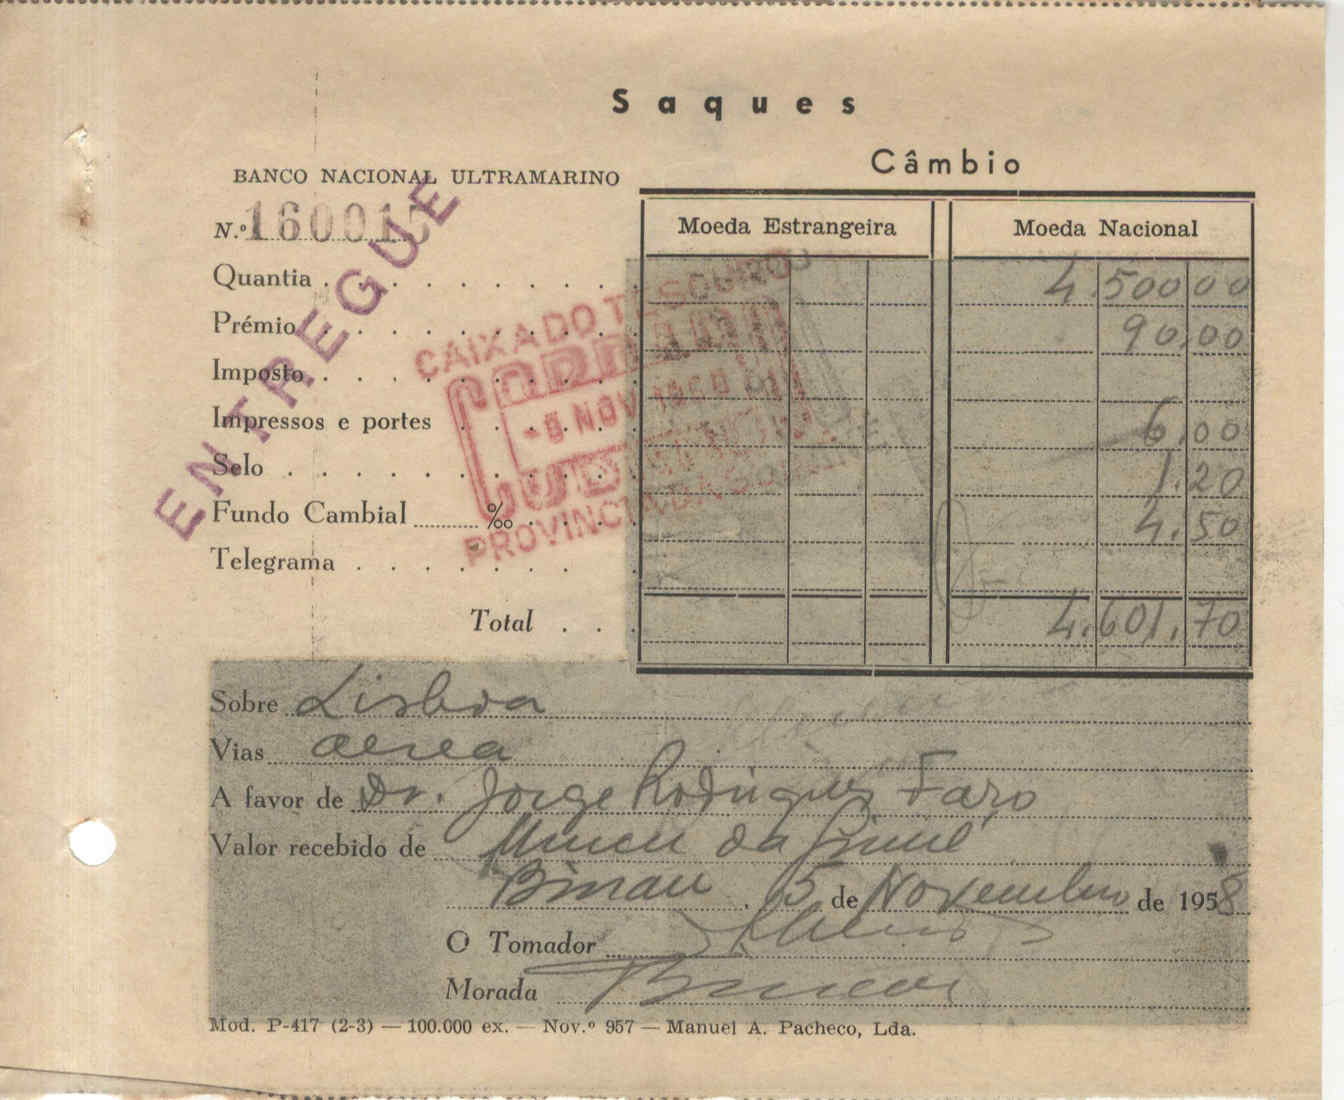 Saques
Câmbio
BANCO NACIONAL ULTRAMARINO
N.º 160010
ENTREGUE
Moeda Estrangeira Moeda Nacional
Quantia 4.500,00
Prémio 90,00
Imposto
Impressos e portes 6,00
Selo 1,20
Fundo Cambial ‰ 4,50
Telegrama
Total 4.601,70
CAIXA DO TESOURO
NOV
PROVINCIA DA GUINÉ
Sobre Lisboa
Vias aerea
A favor de Dr. Jorge Rodrigues Faro
Valor recebido de Museu da Guiné
Bissau, 5 de Novembro de 1958
O Tomador
Morada Bissau
Mod. P-417 (2-3) — 100.000 ex. — Nov.º 957 — Manuel A. Pacheco, Lda.